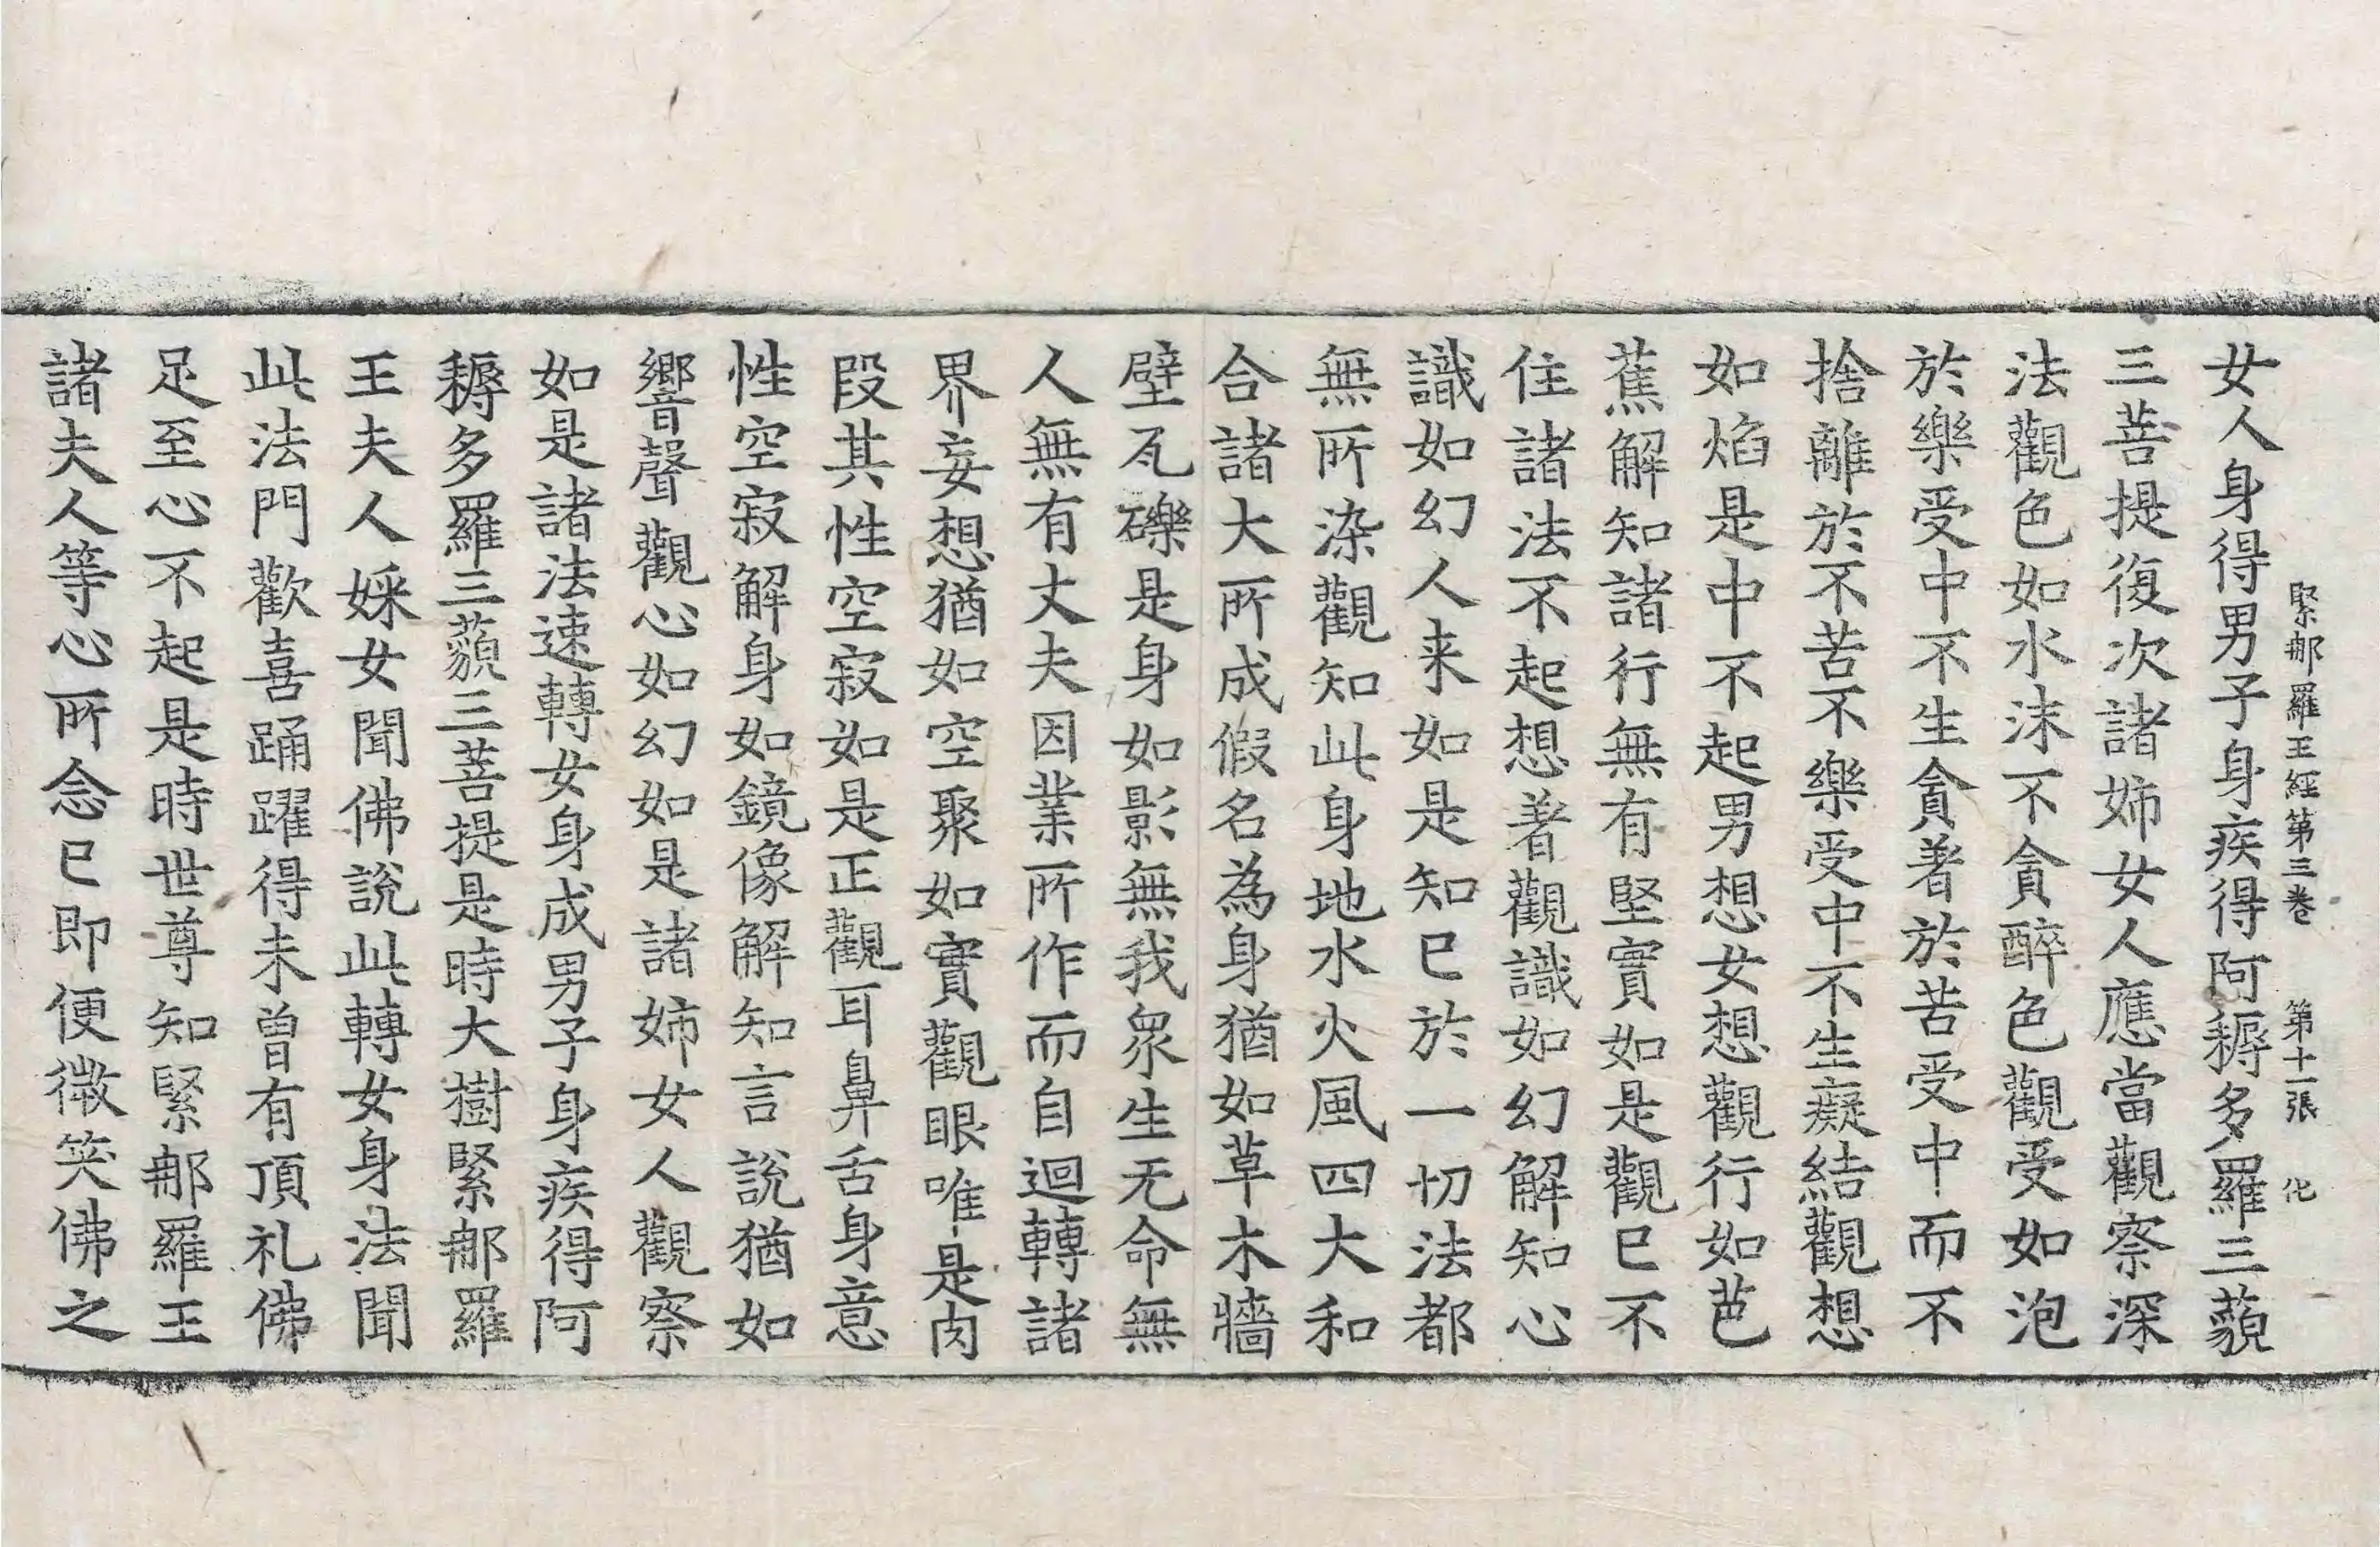 緊那羅王經第三卷　第十一張　化
女人身得男子身疾得阿耨多羅三藐
三菩提復次諸姉女人應當觀察深
法觀色如水沫不貪醉色觀受如泡
於樂受中不生貪著於苦受中而不
捨離於不苦不樂受中不生癡結觀想
如焰是中不起男想女想觀行如芭
蕉解知諸行無有堅實如是觀已不
住諸法不起想著觀識如幻解知心
識如幻人来如是知已於一切法都
無所染觀知此身地水火風四大和
合諸大所成假名為身猶如草木牆
壁瓦礫是身如影無我衆生无命無
人無有丈夫因業所作而自迴轉諸
界妄想猶如空聚如實觀眼唯是肉
段其性空寂如是正觀耳鼻舌身意
性空寂解身如鏡像解知言說猶如
響聲觀心如幻如是諸姉女人觀察
如是諸法速轉女身成男子身疾得阿
耨多羅三藐三菩提是時大樹緊那羅
王夫人婇女聞佛說此轉女身法聞
此法門歡喜踊躍得未曾有頂礼佛
足至心不起是時世尊知緊那羅王
諸夫人等心所念已即便微笑佛之